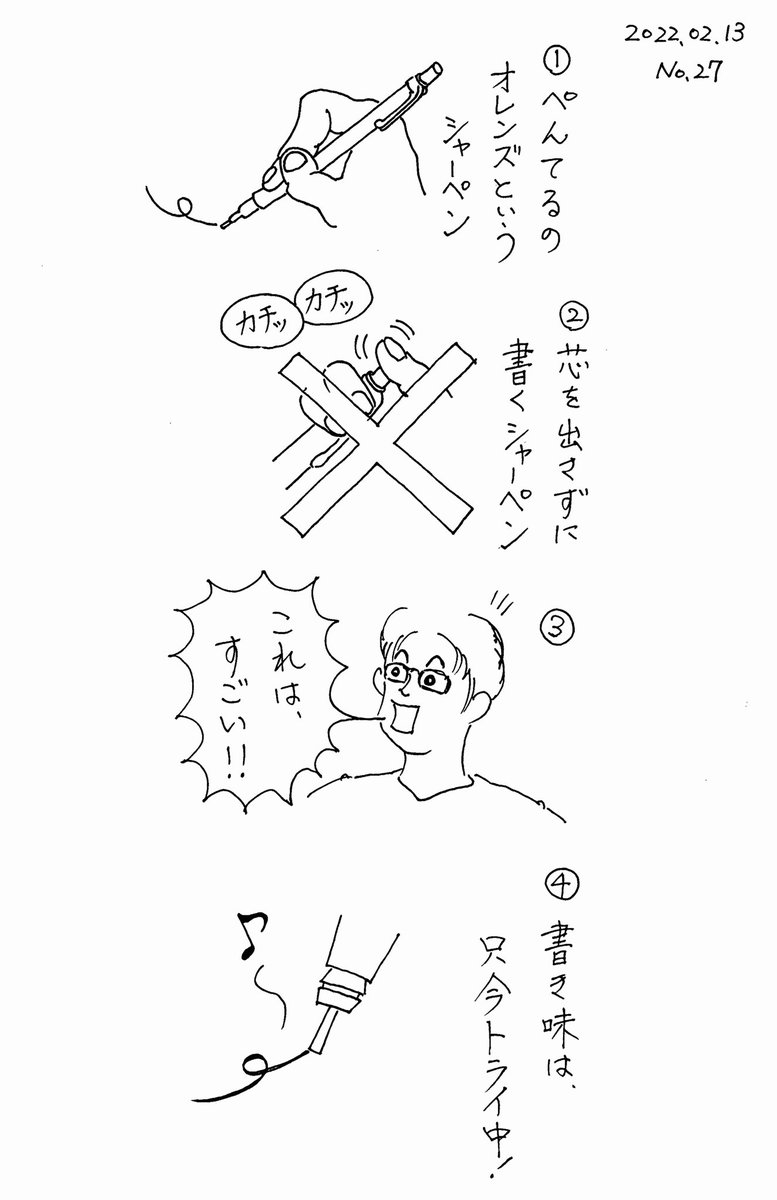 2022.02.13
No.27
① ぺんてるの
オレンズという
シャーペン
② 芯を出さずに
書くシャーペン
カチッ
カチッ
③
これは、
すごい!!
④ 書き味は、
只今トライ中!